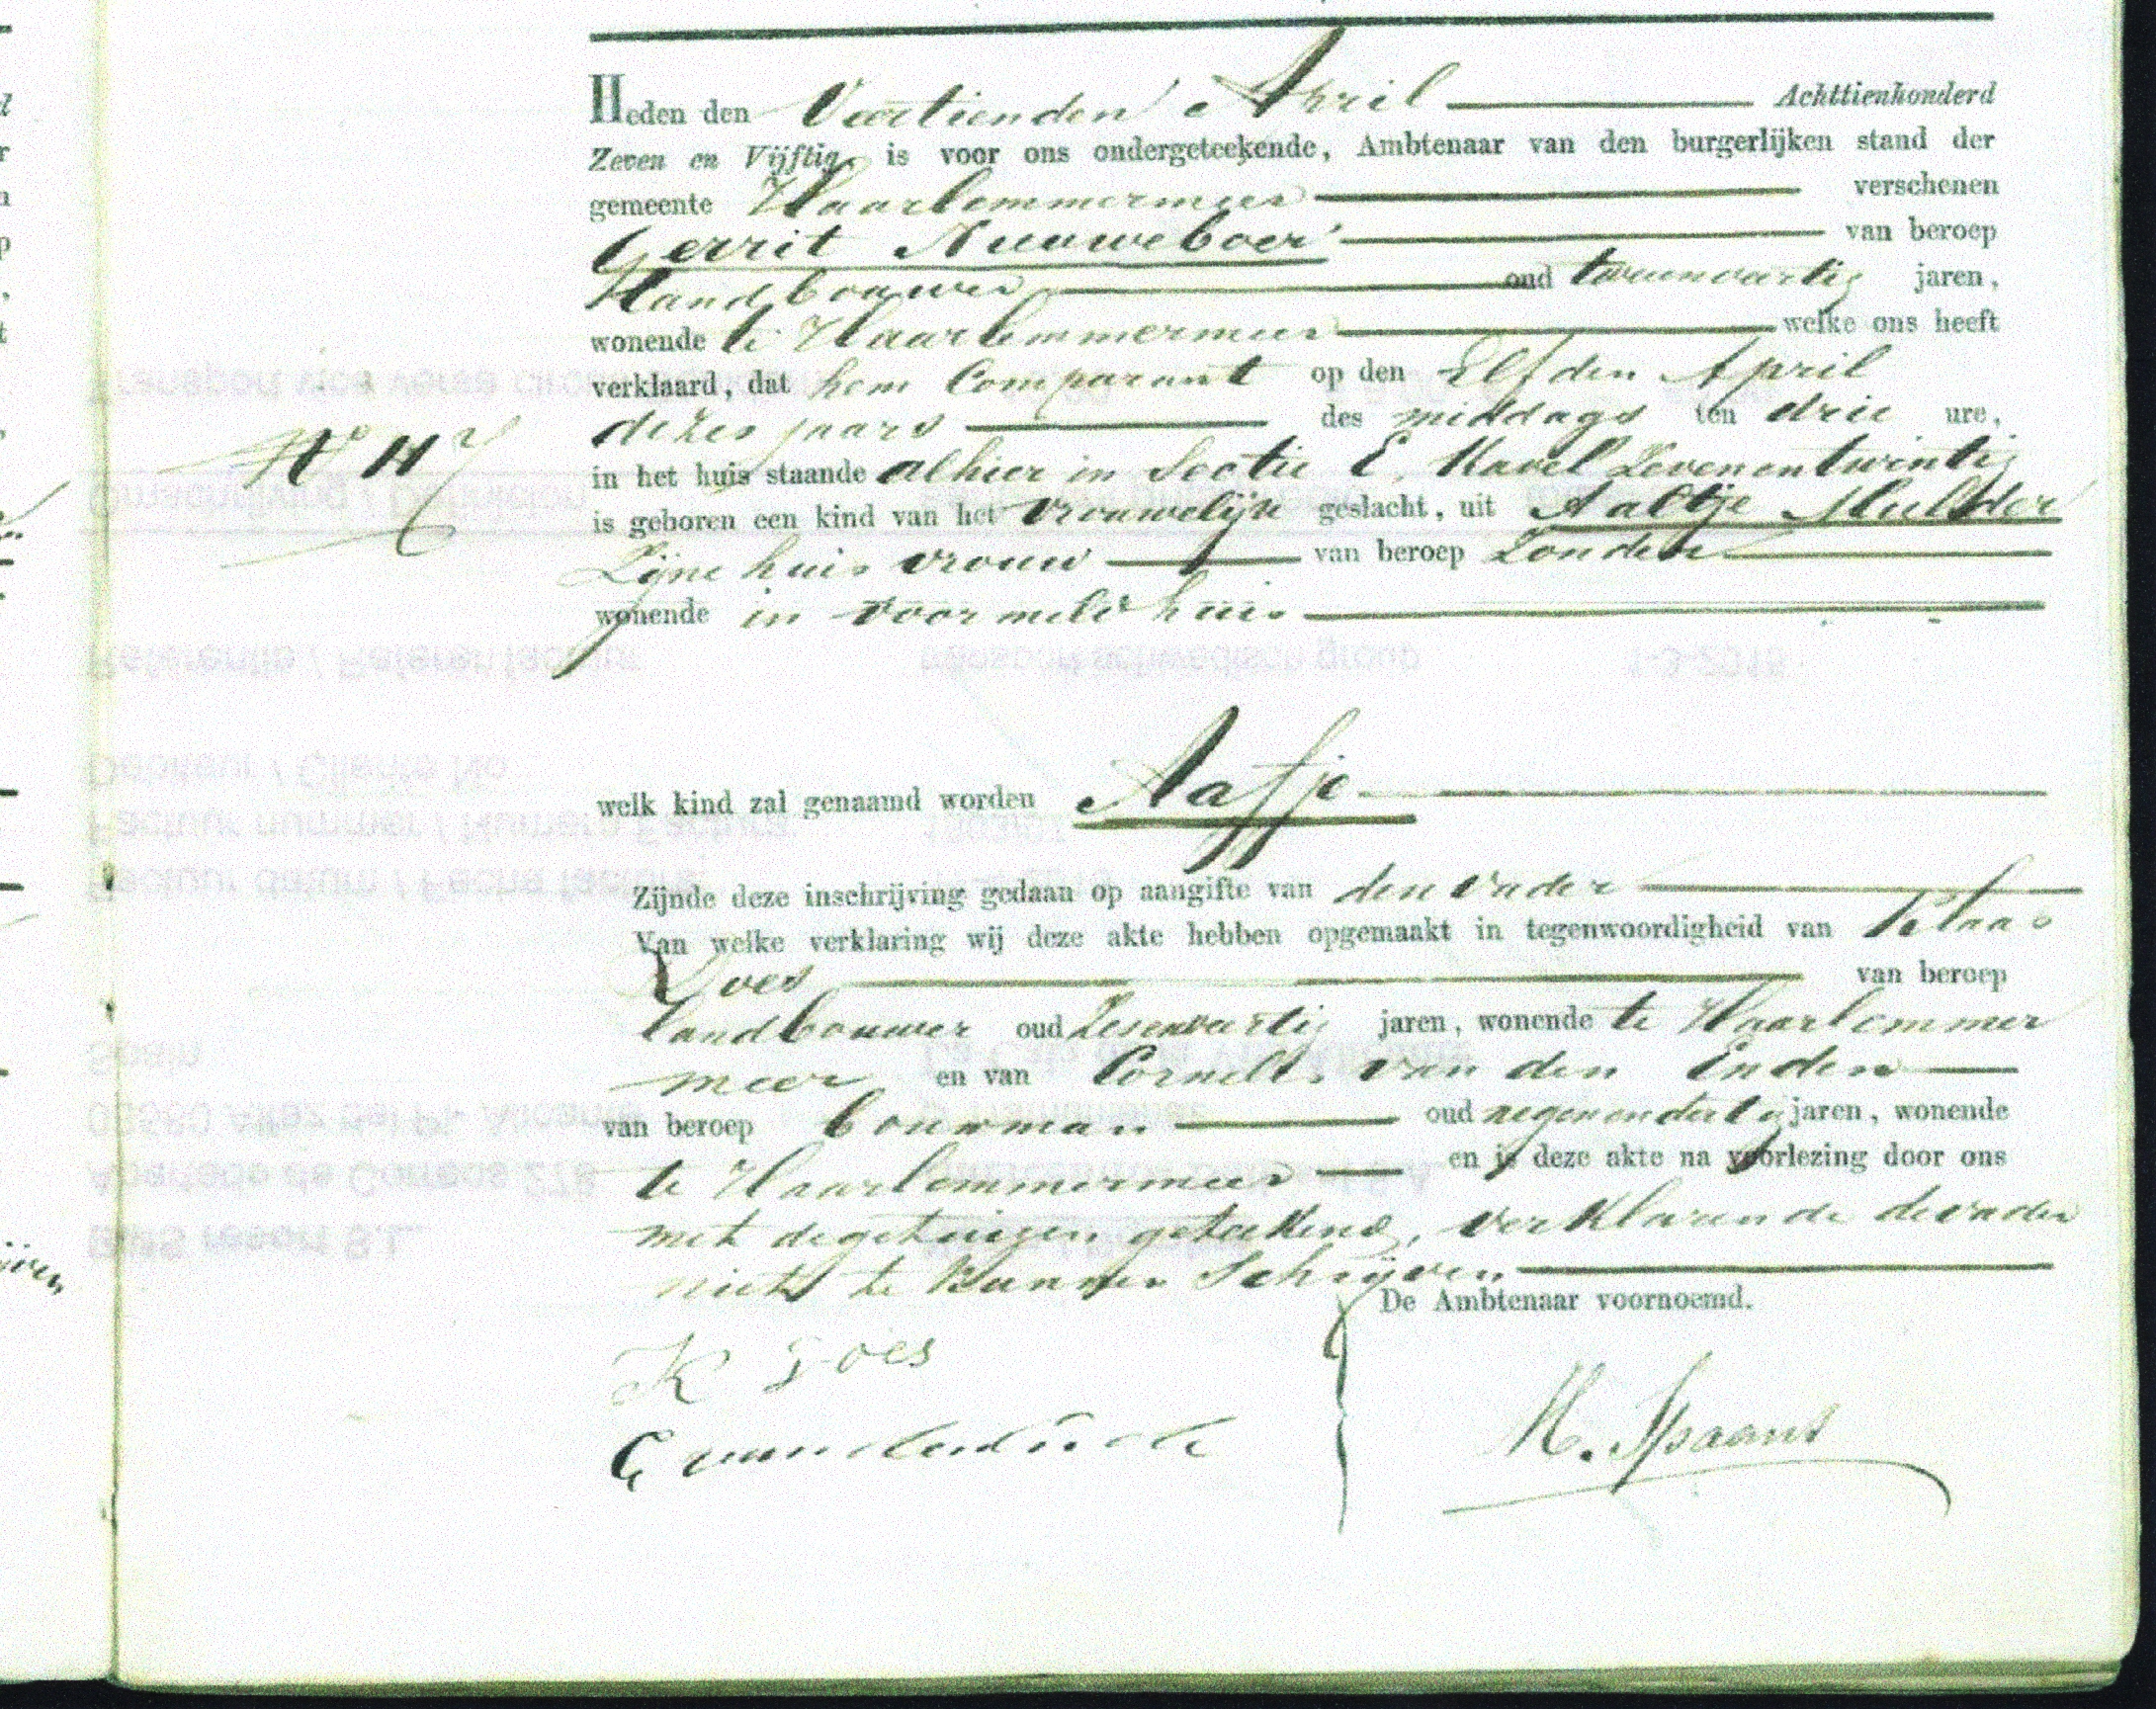 Heden den Veertienden April Achttienhonderd
Zeven en Vijftig, is voor ons ondergeteekende, Ambtenaar van den burgerlijken stand der
gemeente Haarlemmermeer verschenen
Gerrit Nieuweboer van beroep
Landbouwer oud tweeenveertig jaren,
wonende te Haarlemmermeer welke ons heeft
verklaard, dat hem Comparant op den Elfden April
dezes jaars des middags ten drie ure,
in het huis staande alhier in Sectie E. Kavel Zevenentwintig
is geboren een kind van het vrouwelijk geslacht, uit Aaltje Mulder
Zijne huisvrouw van beroep Zonder
wonende in voormeld huis
welk kind zal genaamd worden Aafje
Zijnde deze inschrijving gedaan op aangifte van den vader
Van welke verklaring wij deze akte hebben opgemaakt in tegenwoordigheid van Klaas
Does van beroep
landbouwer oud Zesenveertig jaren, wonende te Haarlemmer
meer en van Cornelis van den Enden
van beroep bouwman oud negenendertig jaren, wonende
te Haarlemmermeer en is deze akte na voorlezing door ons
met de getuigen geteekend, verklarende de vader
niet te kunnen Schrijven
De Ambtenaar voornoemd.
K Does
C van den Ende
M. Spaans